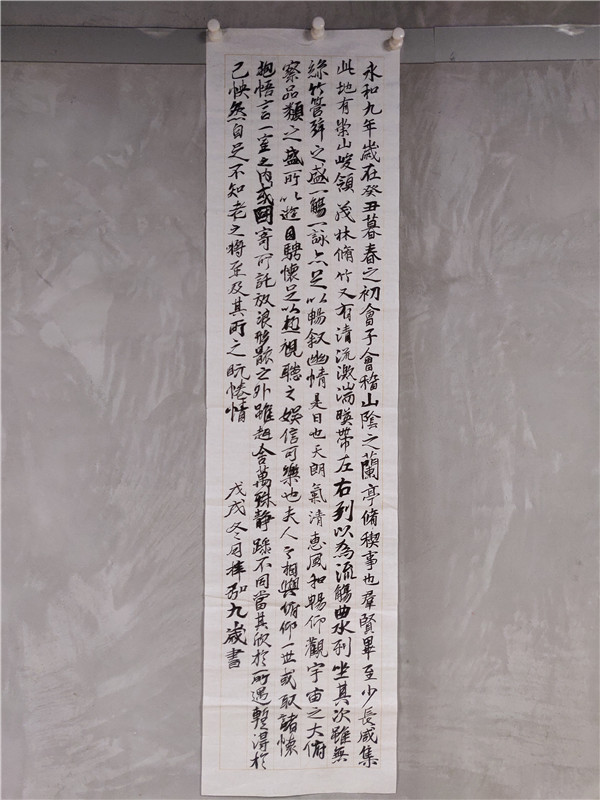 永和九年歲在癸丑暮春之初會于會稽山陰之蘭亭脩稧事也羣賢畢至少長咸集
此地有崇山峻領茂林脩竹又有清流激湍暎帶左右引以為流觴曲水列坐其次雖無
絲竹管弦之盛一觴一詠亦足以暢叙幽情是日也天朗氣清惠風和暢仰觀宇宙之大俯
察品類之盛所以遊目騁懷足以極視聽之娛信可樂也夫人之相與俯仰一世或取諸懷
抱悟言一室之內或因寄所託放浪形骸之外雖趣舍萬殊静躁不同當其欣於所遇暫得於
己怏然自足不知老之將至及其所之既惓情
戊戌冬月 九歲書